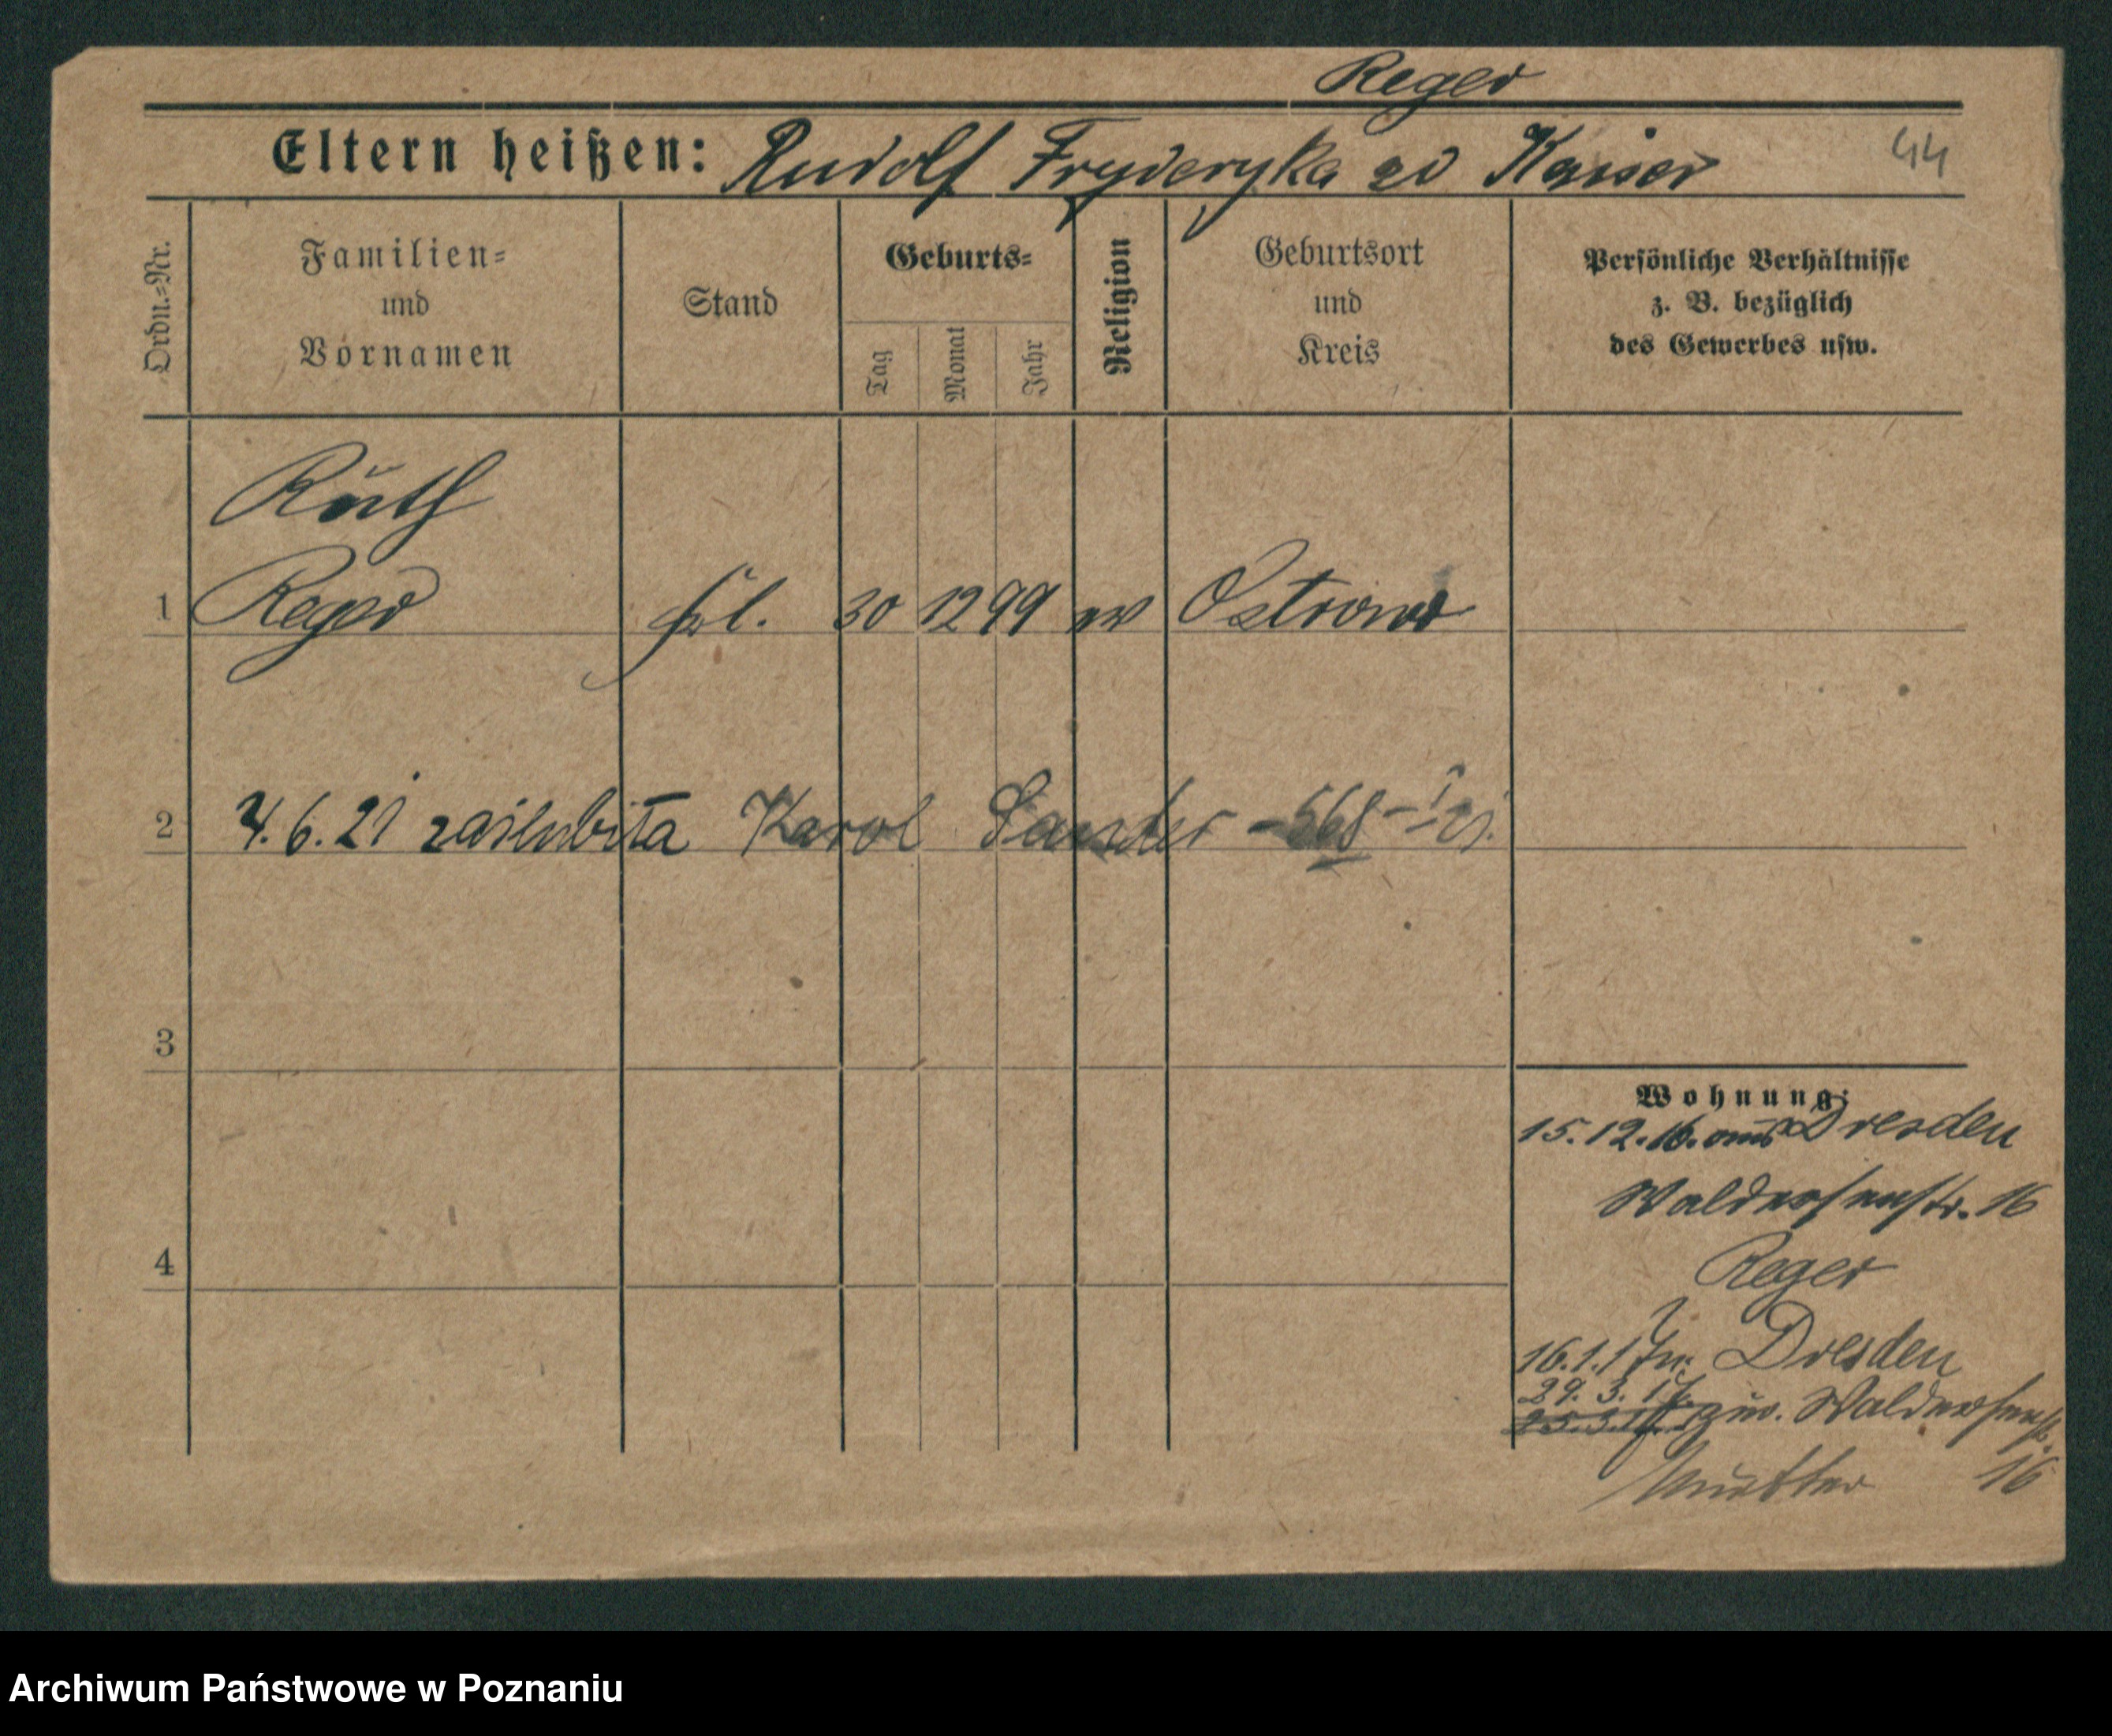 Reger
Eltern heißen: Rudolf Fryderyka zd Kaiser 44
Ordn.=Nr.
Familien=
und
Vornamen
Stand
Geburts=
Tag
Monat
Jahr
Religion
Geburtsort
und
Kreis
Persönliche Verhältnisse
z. B. bezüglich
des Gewerbes usw.
Ruth
1 Reger frl. 30 12 99 ew Ostrowo
2 4.6.21 zaślubiła Karol Sander - 568 -
3
4
Wohnung:
15.12.16. aus Dresden
Walderseestr. 16
Reger
16.1.17 n. Dresden
29. 3. 17. zur. Walderseestr.
16
Mutter
Archiwum Państwowe w Poznaniu